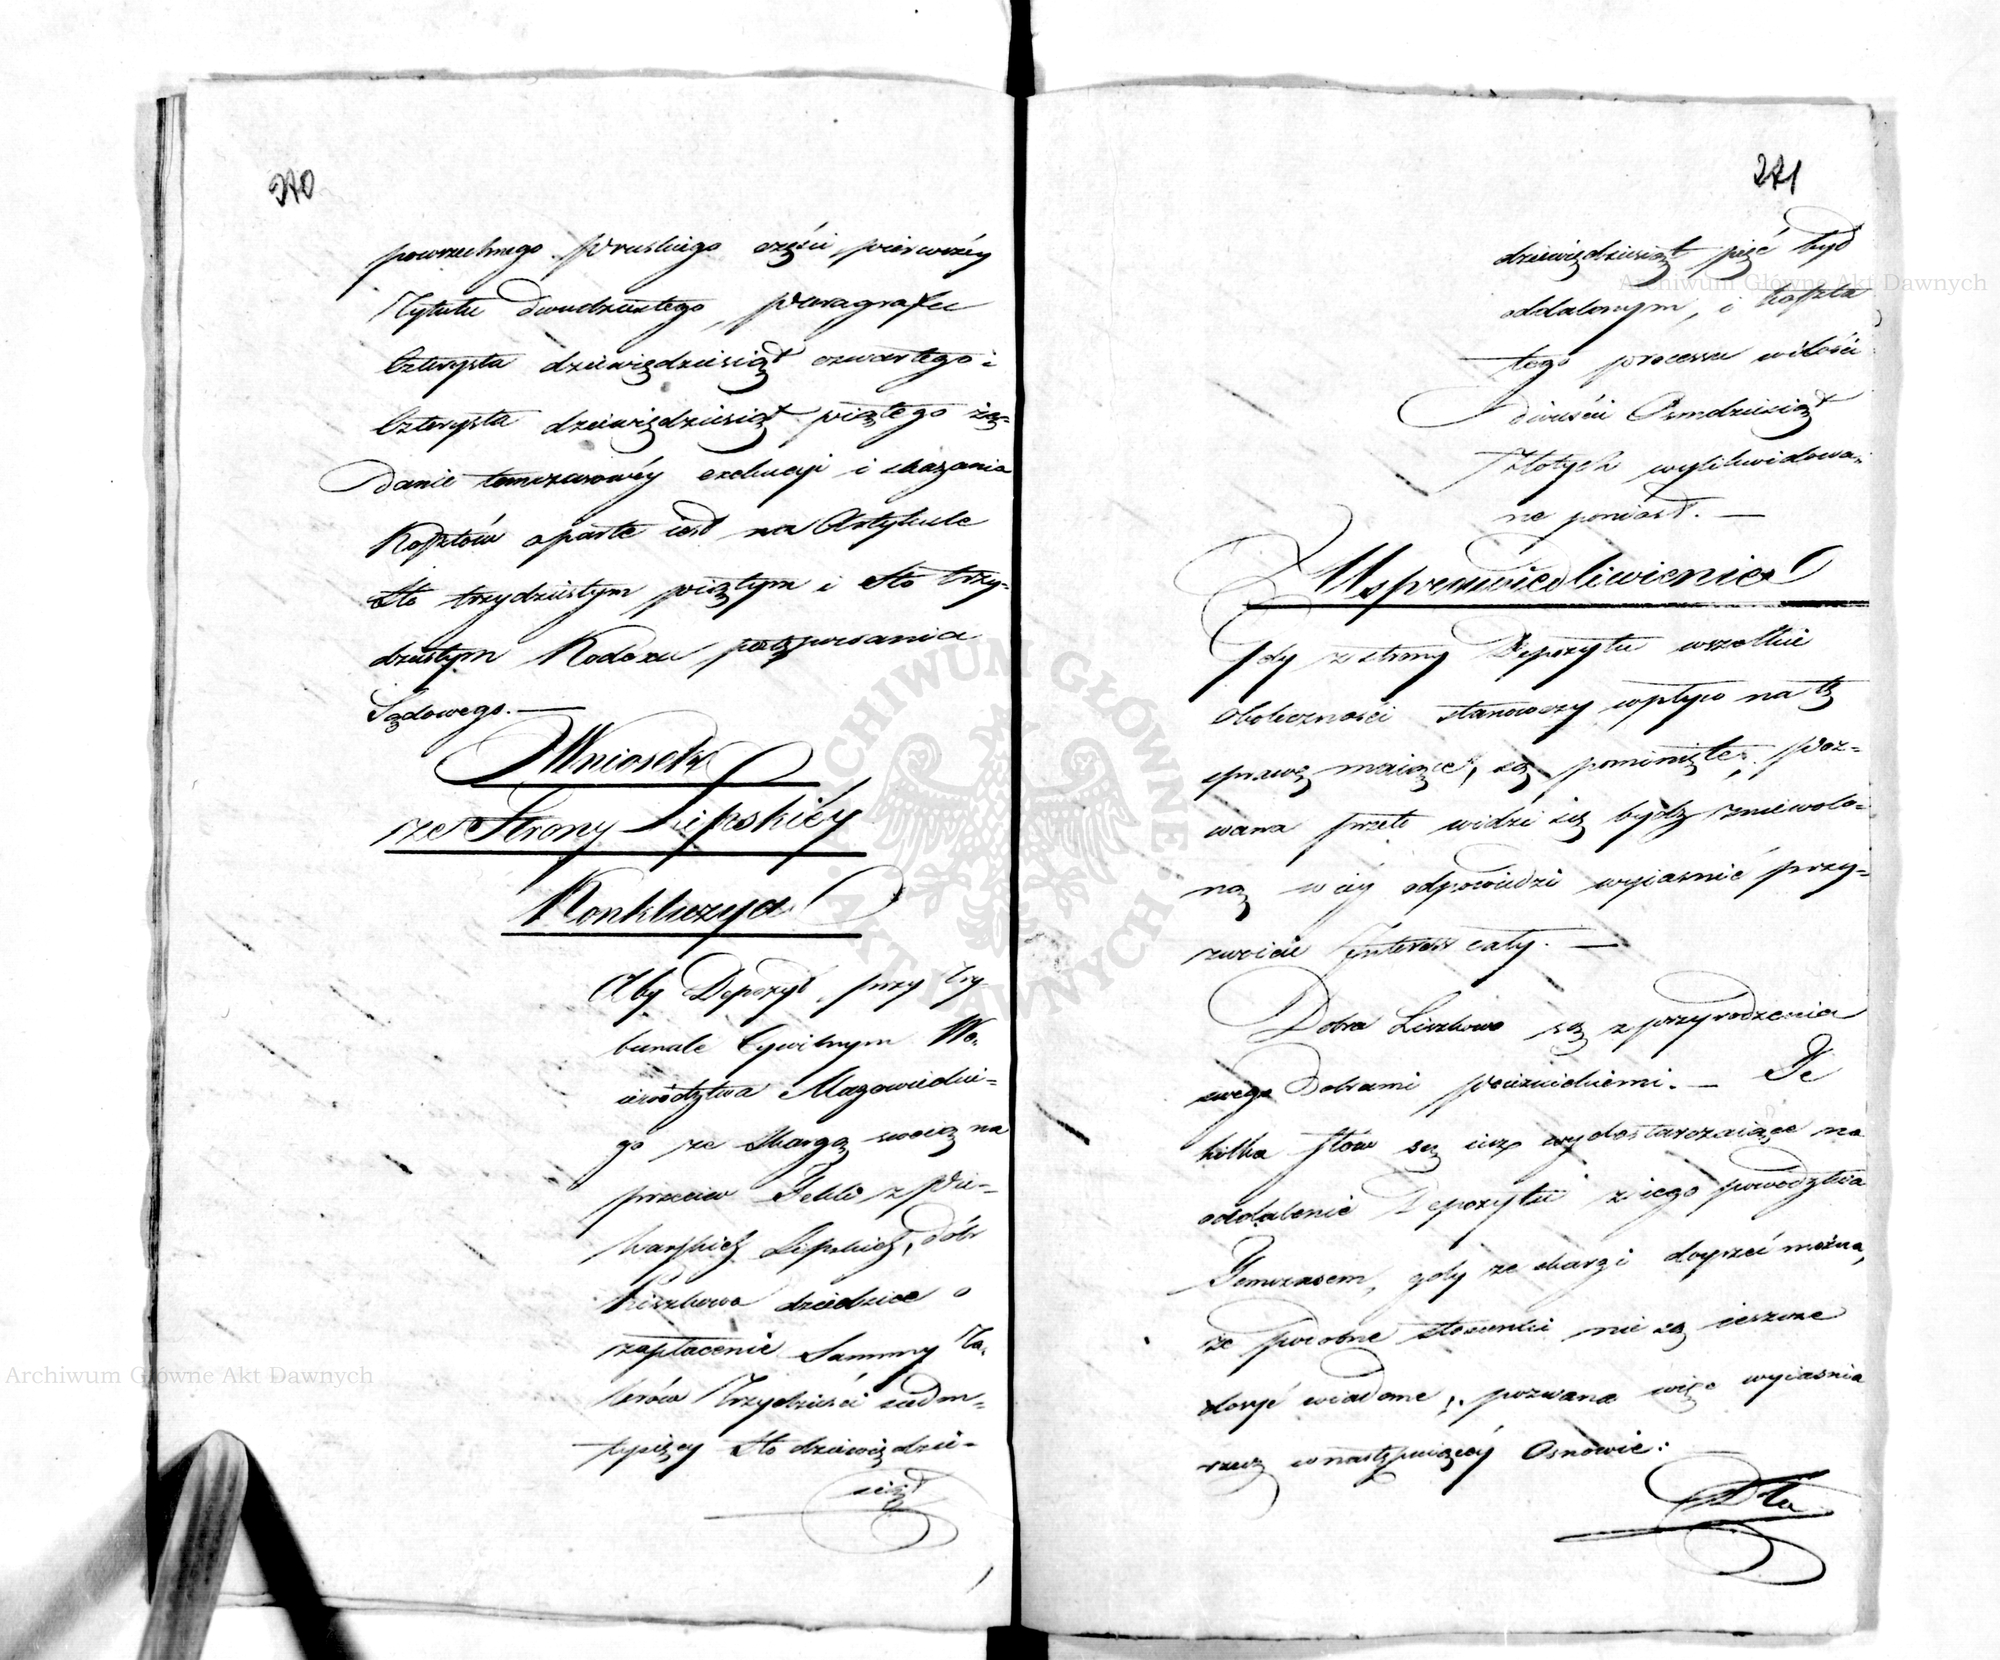 270
powszechnego Pruskiego części pierwszéy
Tytułu dwudziestego, Paragrafu
Czterysta dziewięćdziesiąt czwartego i
Czterysta dziewięćdziesiąt piątego żą-
danie tymczasowéy exekucyi i skazania
Kosztów oparte iest na Artykule
Sto trzydziestym piątym i Sto trzy-
dziestym Kodexu postępowania
Sądowego. —
Wniosek
ze Strony Lipskiéy
Konkluzya
Aby Depozyt, przy Try-
bunale Cywilnym Wo-
iewództwa Mazowieckie-
go ze Skargą swoią na
przeciw Tekli z Pie-
karskich Lipskiéy, dóbr
Liszkowo dziedzice o
zapłacenie Summy Ta-
larów Trzydzieści siedm
tysięcy Sto dziewięćdzie-
siąt
271
dziewięćdziesiąt pięć był
oddalonym, i koszta
tego processu w ilości
dwieście Osmdziesiąt
Złotych wylikwidowa-
ne poniósł. —
Usprawiedliwienie
Gdy z strony Depozytu wszelkie
okoliczności stanowczy wpływ na tę
sprawę maiące, są pominięte, Poz-
wana przeto widzi się bydź zniewolo-
ną w éy odpowiedzi wyiasnić przy-
zwoicie Interess cały. —
Dobra Liszkowo są z przyrodzenia
swego Dobrami Poieznickiemi. — Te
kilka słów są iuż wydostarczaiące na
oddalenie Depozytu z iego powództwa
Tymczasem, gdy ze skargi doyrzeć można,
że podobne stosunki nie są ieszcze
dosyć wiadome, pozwana więc wyiasnia
rzecz w następuiącéy Osnowie: —
Dla
Archiwum Główne Akt Dawnych
Archiwum Główne Akt Dawnych
ARCHIWUM GŁÓWNE AKT DAWNYCH